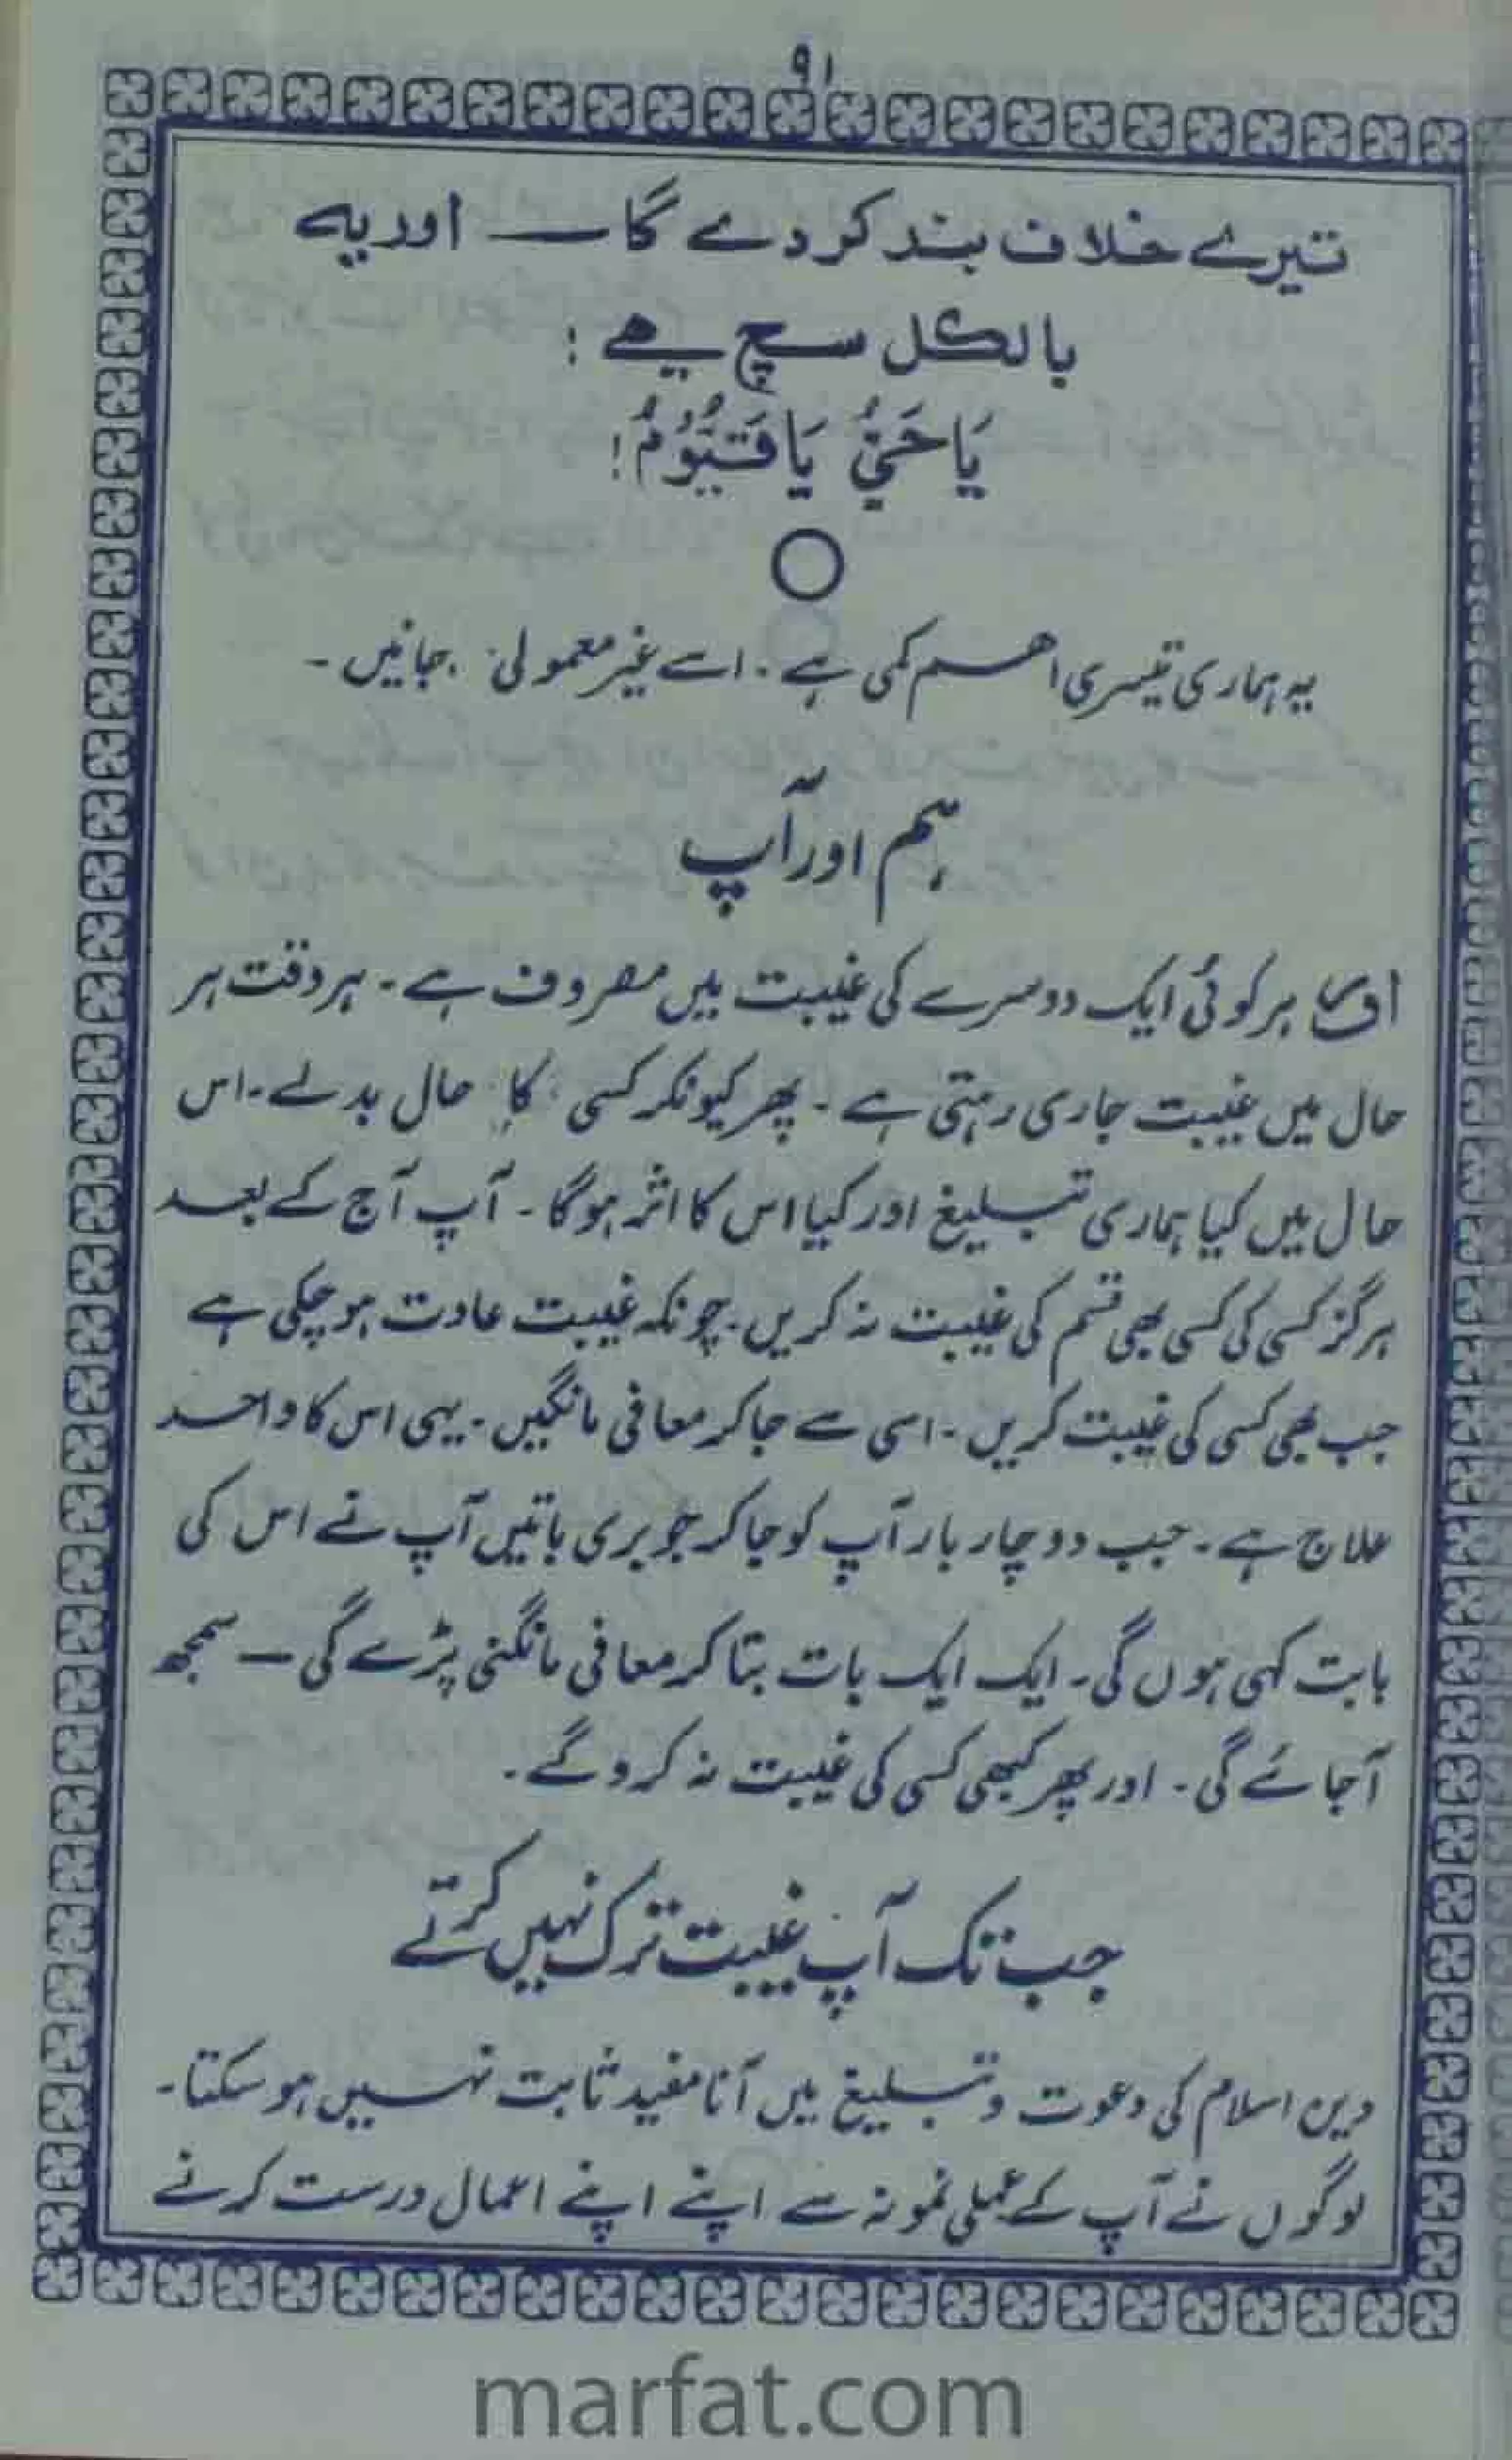 ۹۱
تیرے خلاف بند کر دے گا — اور یہ
بالکل سچ ہے :
یَا حَیُّ یَا قَیُّوْمُ !
یہ ہماری تیسری اہم کمی ہے ۔ اسے غیر معمولی جانیں ۔
ہم اور آپ
ہر کوئی ایک دوسرے کی غیبت میں مصروف ہے ۔ ہر وقت ہر
حال میں غیبت جاری رہتی ہے ۔ پھر کیونکر کسی کا حال بدلے ۔ اس
حال میں کیا ہماری تبلیغ اور کیا اس کا اثر ہوگا ۔ آپ آج کے بعد
ہرگز کسی کی کسی بھی قسم کی غیبت نہ کریں ۔ چونکہ غیبت عادت ہو چکی ہے
جب بھی کسی کی غیبت کریں ۔ اسی سے جا کر معافی مانگیں ۔ یہی اس کا واحد
علاج ہے ۔ جب دو چار بار آپ کو جا کر جو بری باتیں آپ نے اس کی
بابت کہی ہوں گی ۔ ایک ایک بات بتا کر معافی مانگنی پڑے گی — سمجھ
آ جائے گی ۔ اور پھر کبھی کسی کی غیبت نہ کرو گے ۔
جب تک آپ غیبت ترک نہیں کرتے
دین اسلام کی دعوت و تبلیغ میں آنا مفید ثابت نہیں ہو سکتا ۔
لوگوں نے آپ کے عملی نمونہ سے اپنے اپنے اعمال درست کرنے
marfat.com